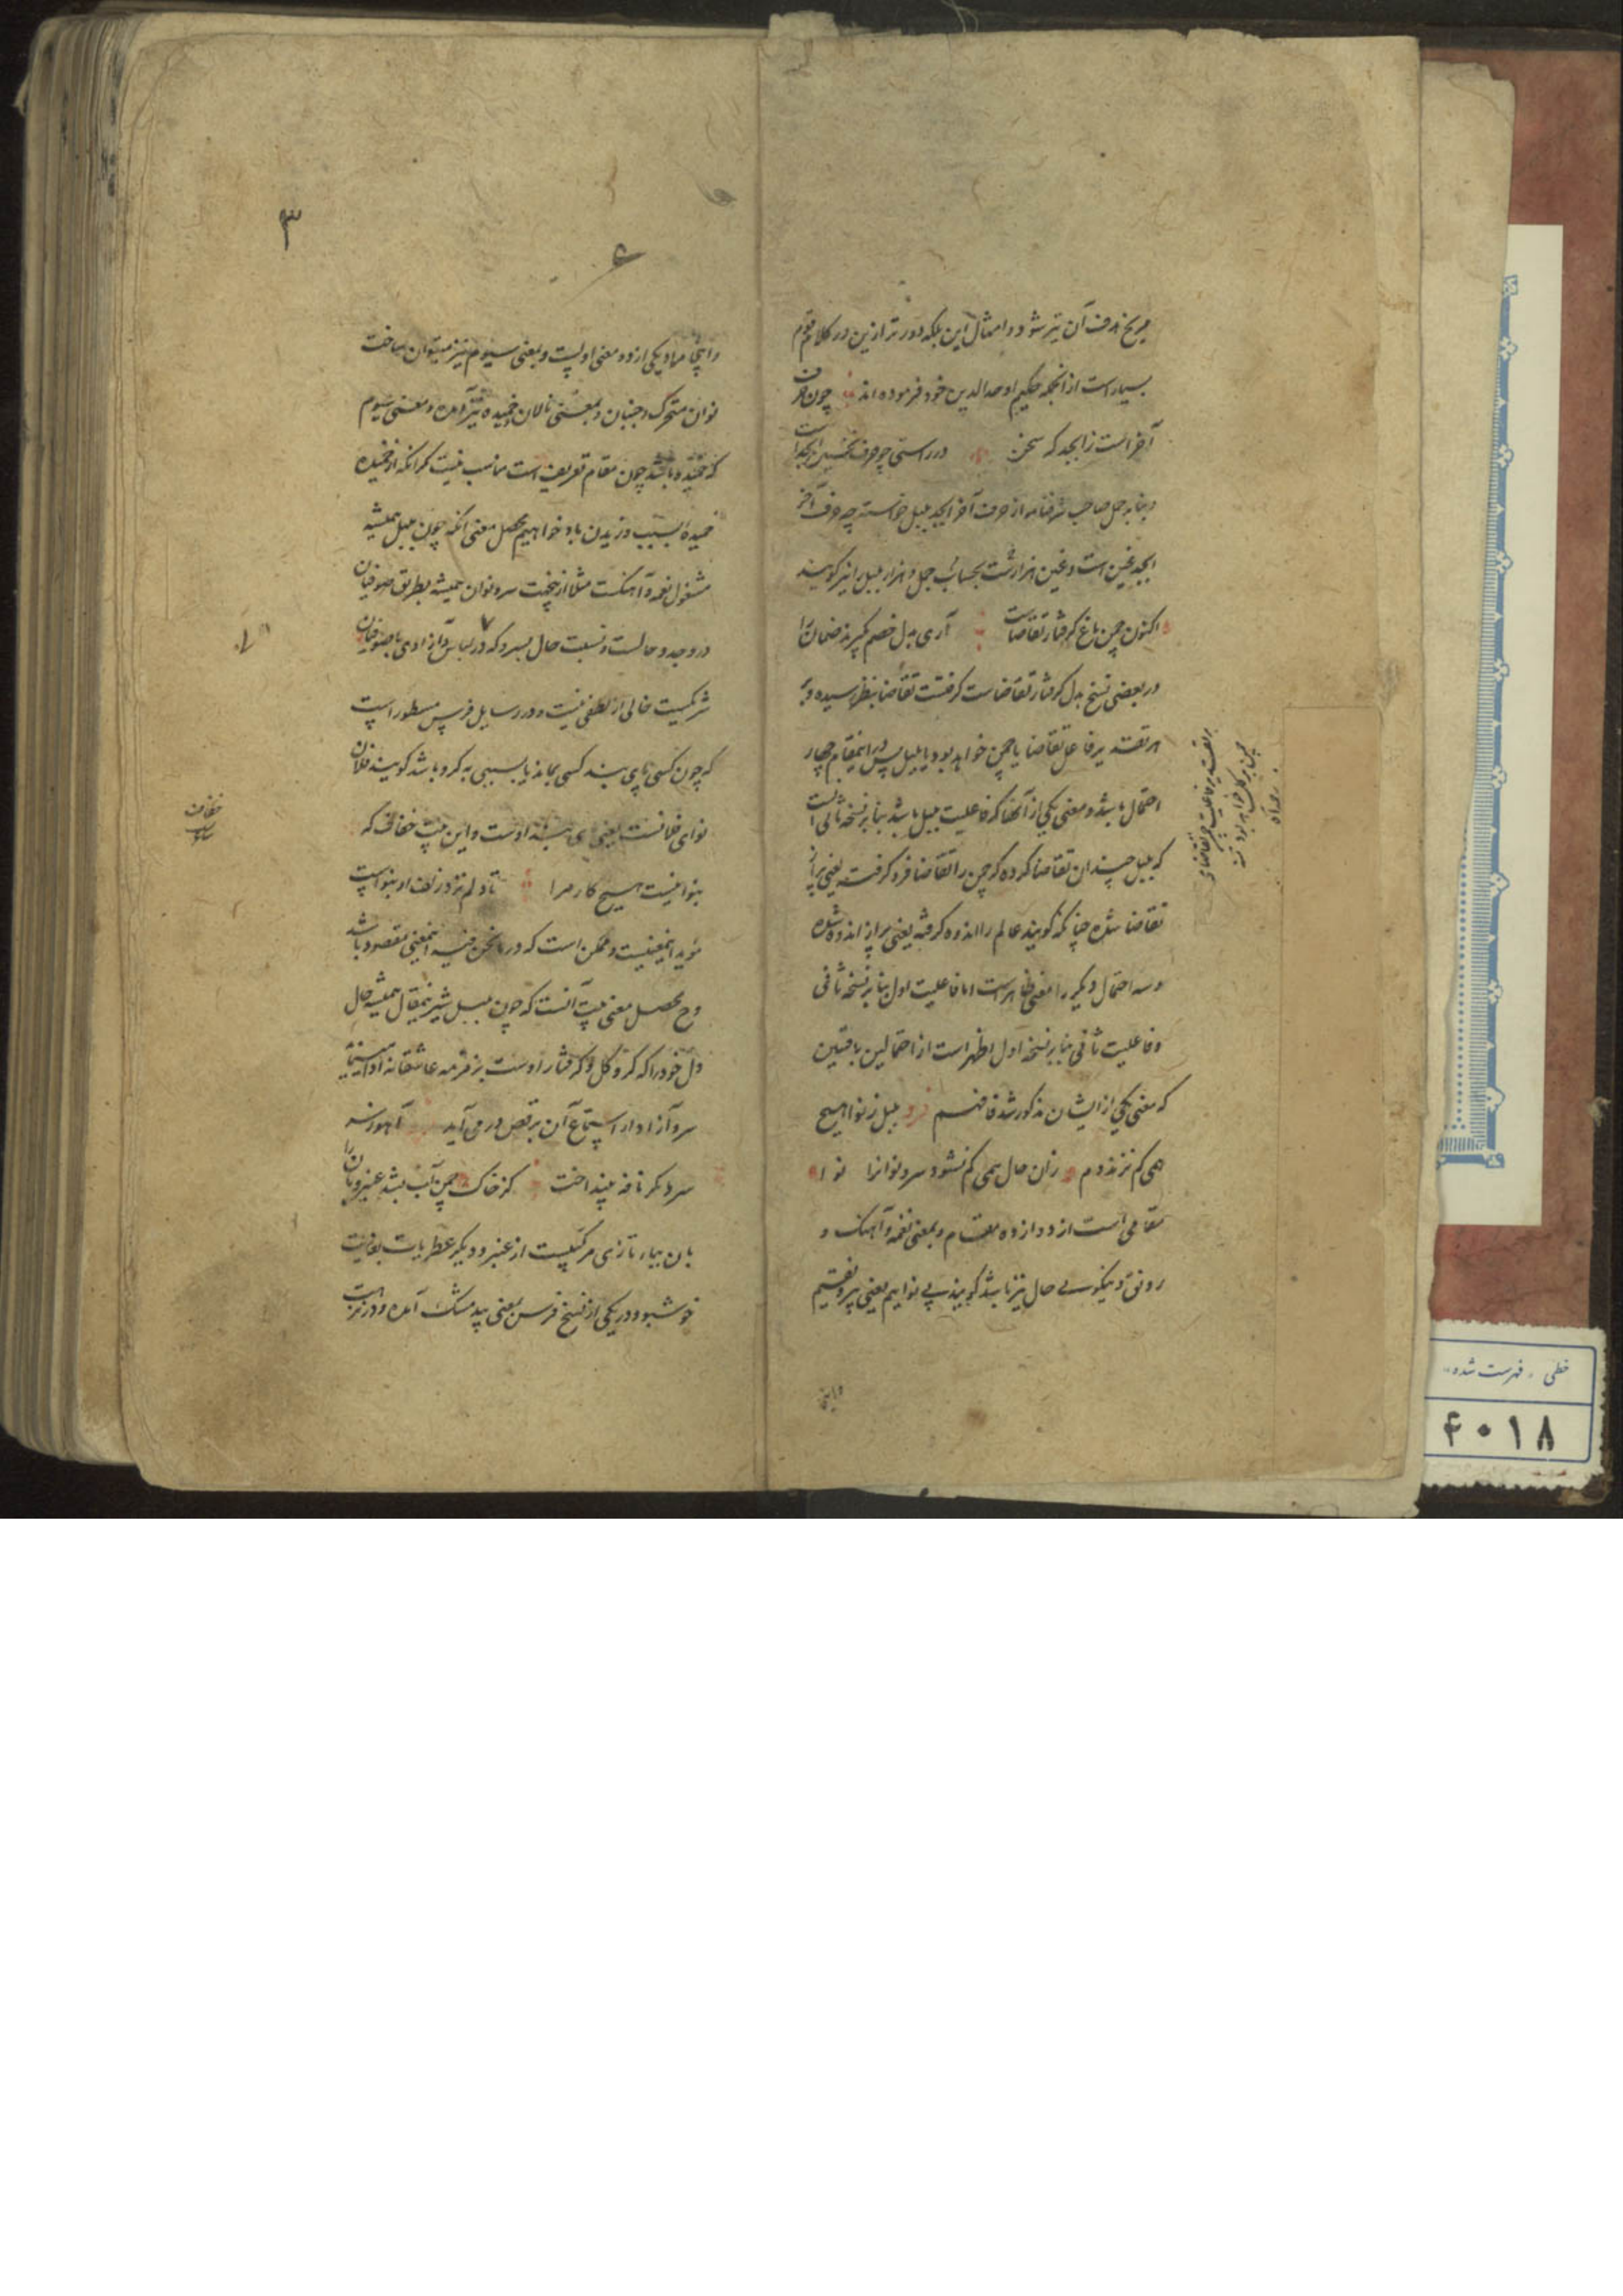 مریخ هدف آن تیر شود و امثال این بلکه دورتر ازین در کلام قوم
بسیار است از آنجمله حکیم اوحدالدین خود فرموده اند چون حرف
آخر است ز ابجد که سخن در راستی چو حرف نخستین ابجد است
و بنابر حل صاحب شرفنامه از حرف آخر ابجد بلبل خواسته چه حرف آخر
ابجد غین است و غین هزار است بحساب جمل و هزار بلبل را نیز گویند
اکنون چمن باغ گرفتار تقاضاست آری بدل خصم گیرند ضمان را
در بعضی نسخ بدل گرفتار تقاضاست گرفتست تقاضا بنظر رسیده و بر
هر تقدیر فاعل تقاضا یا چمن خواهد بود یا بلبل پس درین مقام چهار
احتمال باشد و معنی یکی از آنها که فاعلیت بلبل باشد بنابر نسخه ثانی آنست
که بلبل چندان تقاضا کرده که چمن را تقاضا فرو گرفته یعنی پر از
تقاضا شده چنانکه گویند عالم را اندوه گرفته یعنی پر از اندوه شده
و سه احتمال دیگر را معنی ظاهر است اما فاعلیت اول بنابر نسخه ثانی
و فاعلیت ثانی بنابر نسخه اول اظهر است از احتمالین باقیین
که معنی یکی از ایشان مذکور شد فافهم بلبل ز نوا هیچ
همی کم نزند دم زان حال همی کم نشود سرو نوان را نوا
مقامی است از دوازده مقام و بمعنی نغمه و آهنگ و
رونق و نیکویی حال نیز باشد گویند بی نواییم یعنی بی رونقیم
و اینجا
۳
و اینجا مراد یکی از دو معنی اولست و بمعنی سیوم نیز میتوان ساخت
نوان متحرک و جنبان و بمعنی نالان و خمیده نیز آمده و معنی سیوم
که خمیده باشد چون مقام تعریف است مناسب نیست مگر آنکه از خمیده
خمیده بسبب وزیدن باد خواهیم محصل معنی آنکه چون بلبل همیشه
مشغول نغمه و آهنگست مثلا ازینجهت سرو نوان همیشه بطریق صوفیان
در وجد و حالست و نسبت حال بسرو که در لباس و آزادی با صوفیان
شریکست خالی از لطفی نیست و در رسایل فرس مسطور است
که چون کسی پای بند کسی بماند یا بسببی به گرو باشد گویند فلان
نوای فلانست یعنی پای بند اوست و این بیت خفاف که
بنوا نیست هیچ کار مرا تا دلم نزد زلف او بنواست
مؤید اینمعنیست و ممکن است که در ما نحن فیه اینمعنی مقصود باشد
و ح محصل معنی بیت آنست که چون بلبل شیرین مقال همیشه حال
دل خود را که گرو گل و گرفتار اوست بزمزمه عاشقانه ادا مینماید
سرو آزاد از استماع آن برقص در می آید آهو بسر
سبزه مگر نافه بینداخت کز خاک چمن آب بشد عنبر و بان را
بان بباء تازی مرکبیست از عنبر و دیگر عطریات بغایت
خوشبو و در یکی از نسخ فرس بمعنی بید مشک آمده و در نزهت
خطی «فهرست شده»
۴۰۱۸